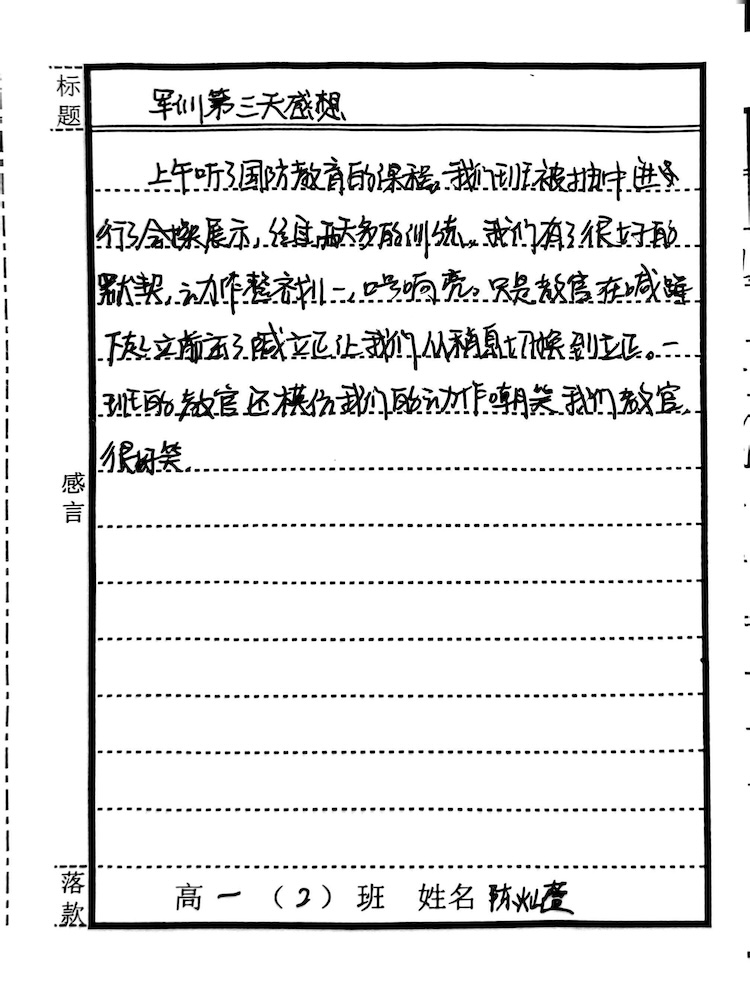 标题
军训第三天感想
上午听了国防教育的课程。我们班被抽中进
行了会操展示,经过两天多的训练。我们有了很好的
默契,动作整齐划一,口号响亮。只是教官在喊蹲
下起立前忘了喊立正让我们从稍息切换到立正。一
班的教官还模仿我们的动作嘲笑我们教官,
很好笑.
感言
落款
高一(2)班 姓名 陈灿萱